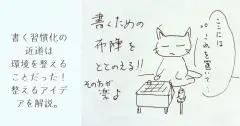 書く習慣化の
近道は
環境を整える
ことだった！
整えるアイデ
アを解説。
書くための
布陣を
ととのえる!!
その方が
楽よ
ここには
これを置いて…